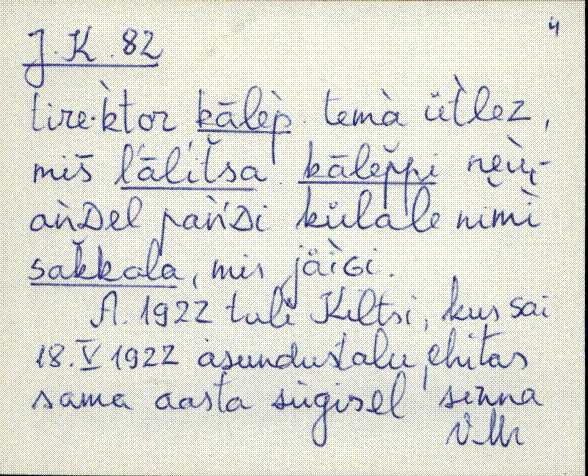 4
J. K. 82
tire·k̀tor kālep̀ temà ǜtlez,
miš l'ālit̆sa kālep̆pi nèu̯-
aǹDel pań̀Di külàle nimì
sak̆kala, mis jäìGi.
A. 1922 tuli Kiltsi, kus sai
18. V 1922 asundustalu, ehitas
sama aasta sügisel sinna